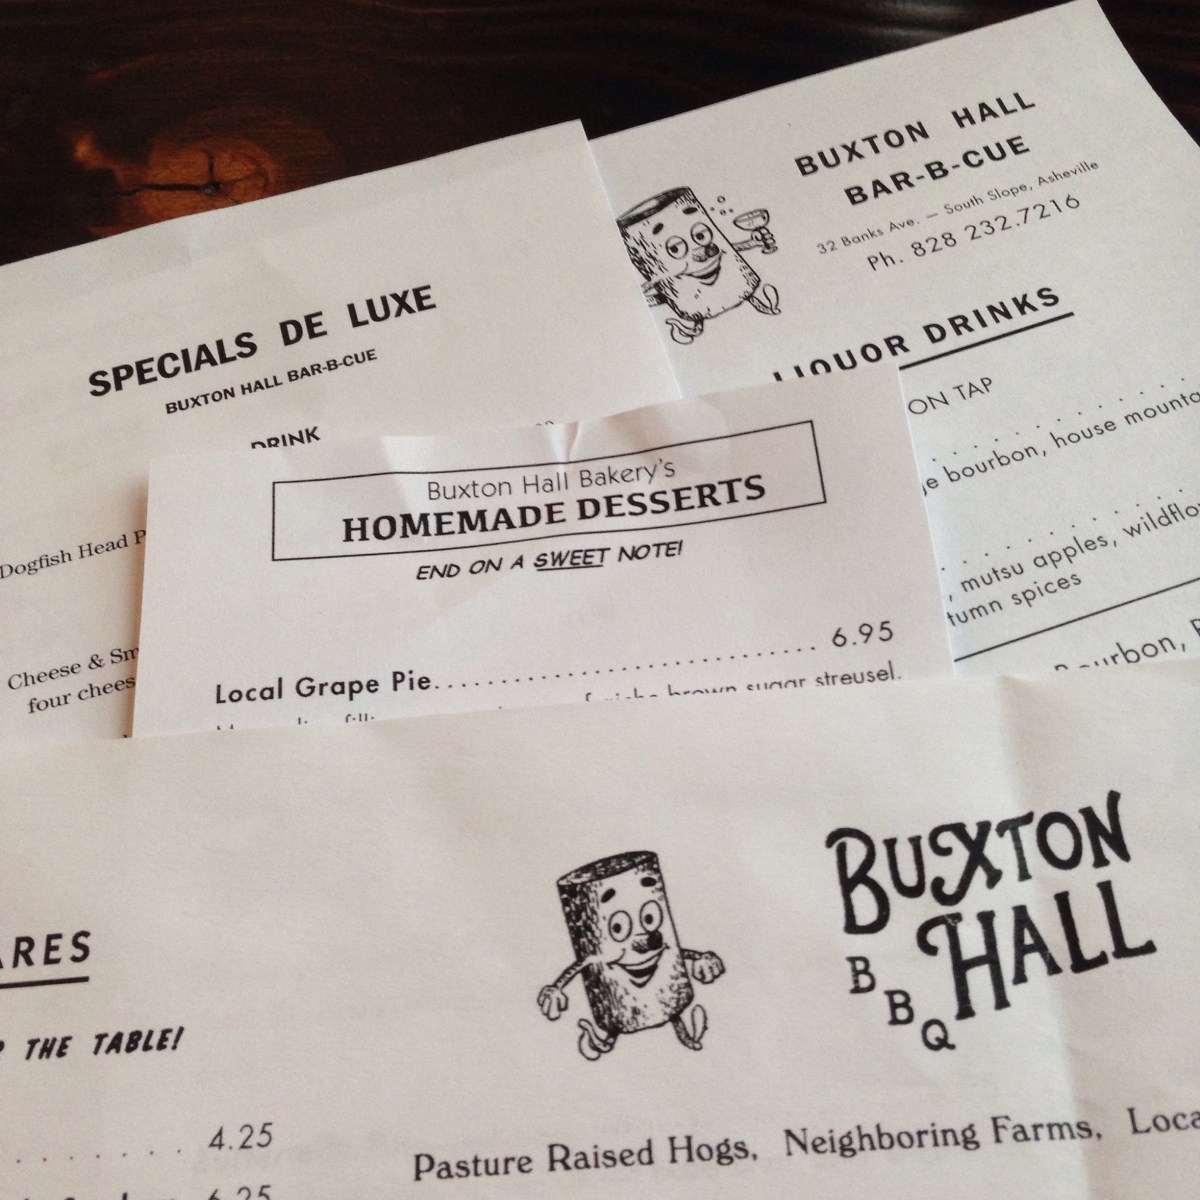 BUXTON HALL
BAR-B-CUE
32 Banks Ave. — South Slope, Asheville
Ph. 828 232.7216
LIQUOR DRINKS
ON TAP
bourbon, house
mutsu apples,
spices
SPECIALS DE LUXE
BUXTON HALL BAR-B-CUE
DRINK
Dogfish Head
Cheese &
four
Buxton Hall Bakery's
HOMEMADE DESSERTS
END ON A SWEET NOTE!
Local Grape Pie........................................ 6.95
brown sugar streusel.
BUXTON
HALL
BBQ
THE TABLE!
. . . . . . . 4.25
6.25
Pasture Raised Hogs, Neighboring Farms,